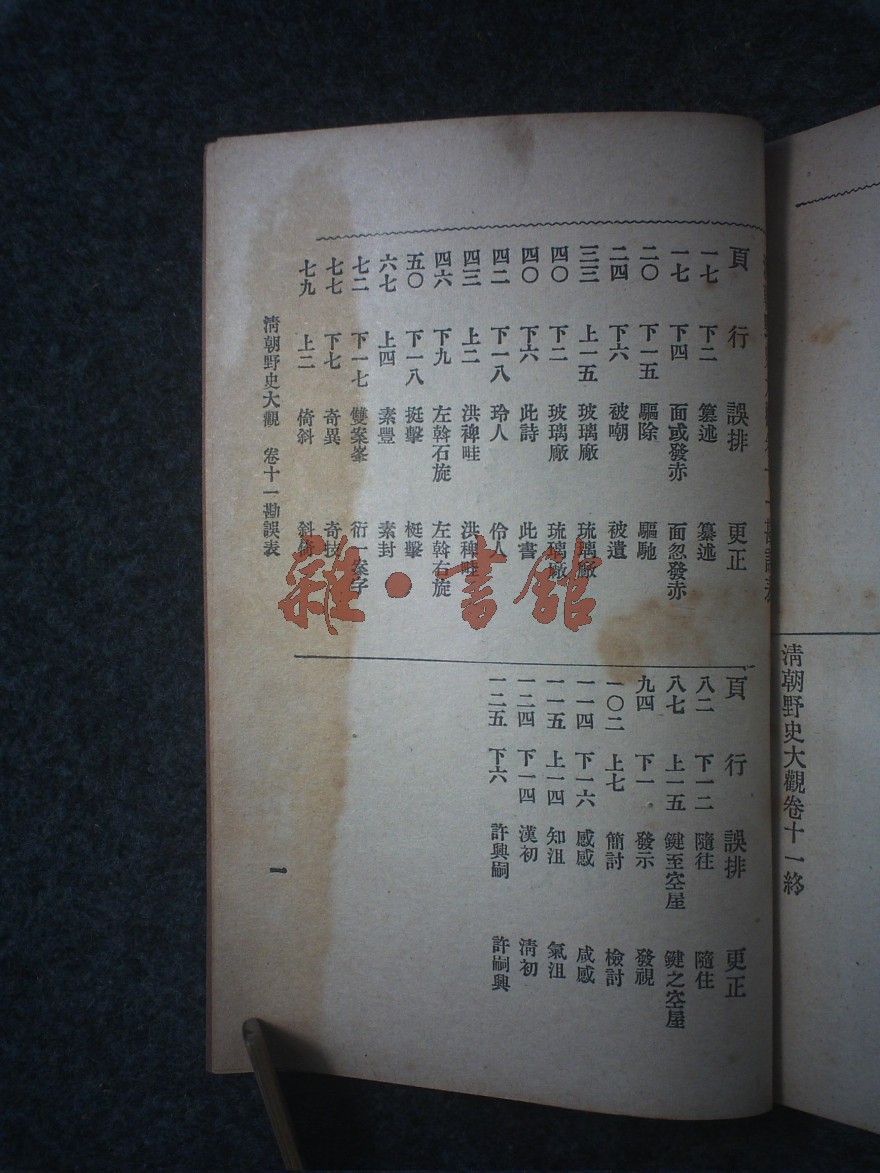 清朝野史大觀卷十一終
頁 行 誤排 更正
一七 下二 篡述 纂述
一七 下四 面或發赤 面忽發赤
二〇 下一五 驅除 驅馳
二四 下六 被嘲 被遺
三三 上一五 玻璃廠 琉璃廠
四〇 下二 玻璃廠 琉璃廠
四〇 下六 此詩 此書
四二 下一八 玲人 伶人
四三 上二 洪稗畦 洪稗畦
四六 下九 左斡石旋 左斡右旋
五〇 下一八 挺擊 梃擊
六七 上四 素豐 素封
七二 下一七 雙案峯 衍一案字
七七 下七 奇異 奇技
七九 上二 倚斜 斜倚
頁 行 誤排 更正
八二 下一二 隨往 隨住
八七 上一五 鍵至空屋 鍵之空屋
九四 下一 發示 發視
一〇二 上七 簡討 檢討
一一四 下一六 感感 咸感
一一五 上一四 知沮 氣沮
一二四 下一四 漢初 清初
一二五 下六 許興嗣 許嗣興
清朝野史大觀 卷十一勘誤表
一
雜·書館